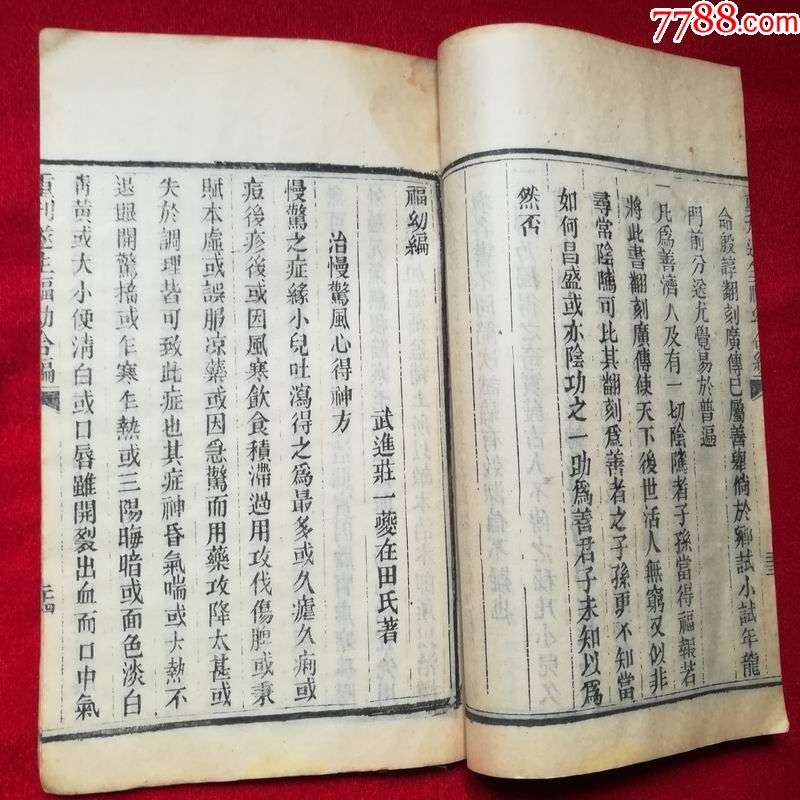 7788.com
命殷諄翻刻廣傳已屬善舉倘於鄉試小試年龍
門前分送尤覺易於普遍
一凡爲善濟人及有一切陰隲者子孫當得福報若
將此書翻刻廣傳使天下後世活人無窮又似非
尋常陰隲可比其翻刻爲善者之子孫更不知當
如何昌盛或亦陰功之一助爲善君子未知以爲
然否
福幼編
武進莊一夔在田氏著
治慢驚風心得神方
慢驚之症緣小兒吐瀉得之爲最多或久瘧久痢或
痘後疹後或因風寒飲食積滯過用攻伐傷胆或秉
賦本虛或誤服凉藥或因急驚而用藥攻降太甚或
失於調理皆可致此症也其症神昏氣喘或大熱不
退眼開驚搐或乍寒乍熱或三陽晦暗或面色淡白
靑黃或大小便淸白或口唇雖開裂出血而口中氣
重刊遂生福幼合編
二十四